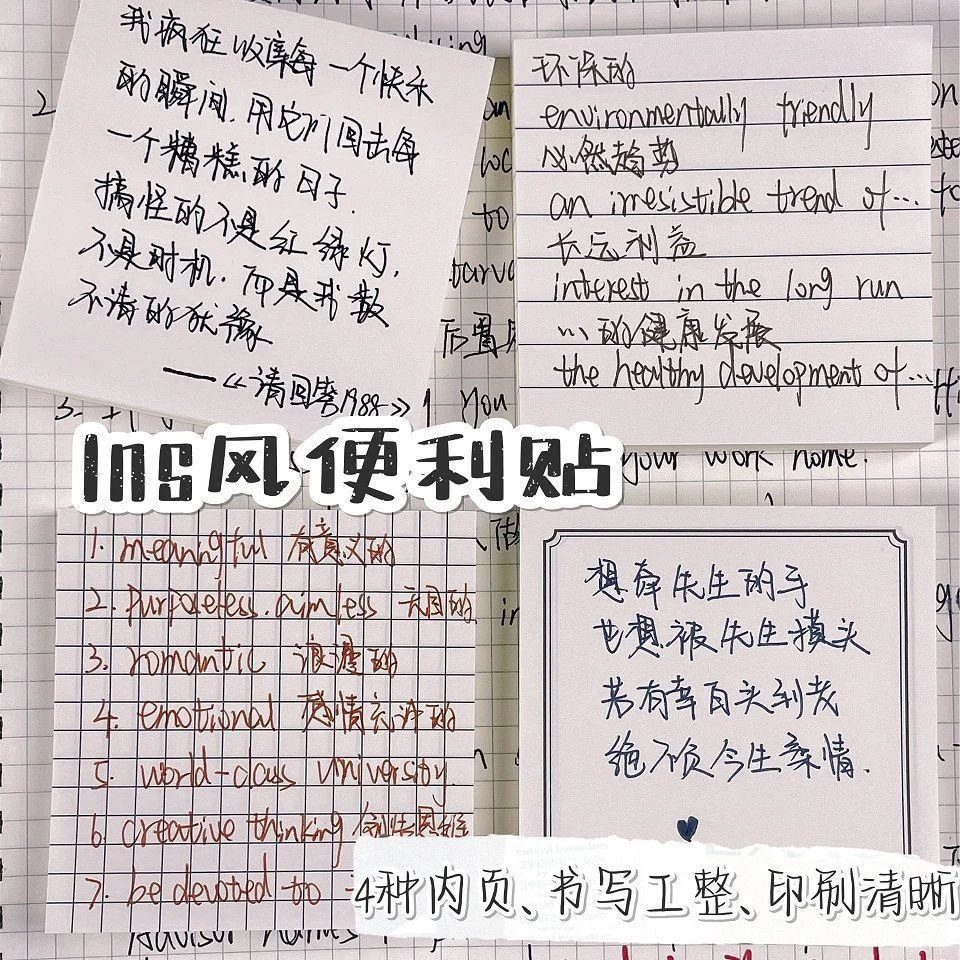 我疯狂收集每一个快乐
的瞬间,用它们回击每
一个糟糕的日子.
搞怪的不是红绿灯,
不是时机.而是我数
不清的犹豫
——<<请回答1988>>
环保的
environmentally friendly
必然趋势
an irresistible trend of...
长远利益
interest in the long run
...的健康发展
the healthy development of...
Ins风便利贴
your work home.
1. meaningful 有意义的
2. purposeless. aimless 无目的
3. romantic 浪漫的
4. emotional 感情方面的
5. world-class university
6 creative thinking 创造思维
7. be devoted to
想牵先生的手
也想被先生摸头
若有幸白头到老
绝不负今生柔情.
4种内页、书写工整、印刷清晰